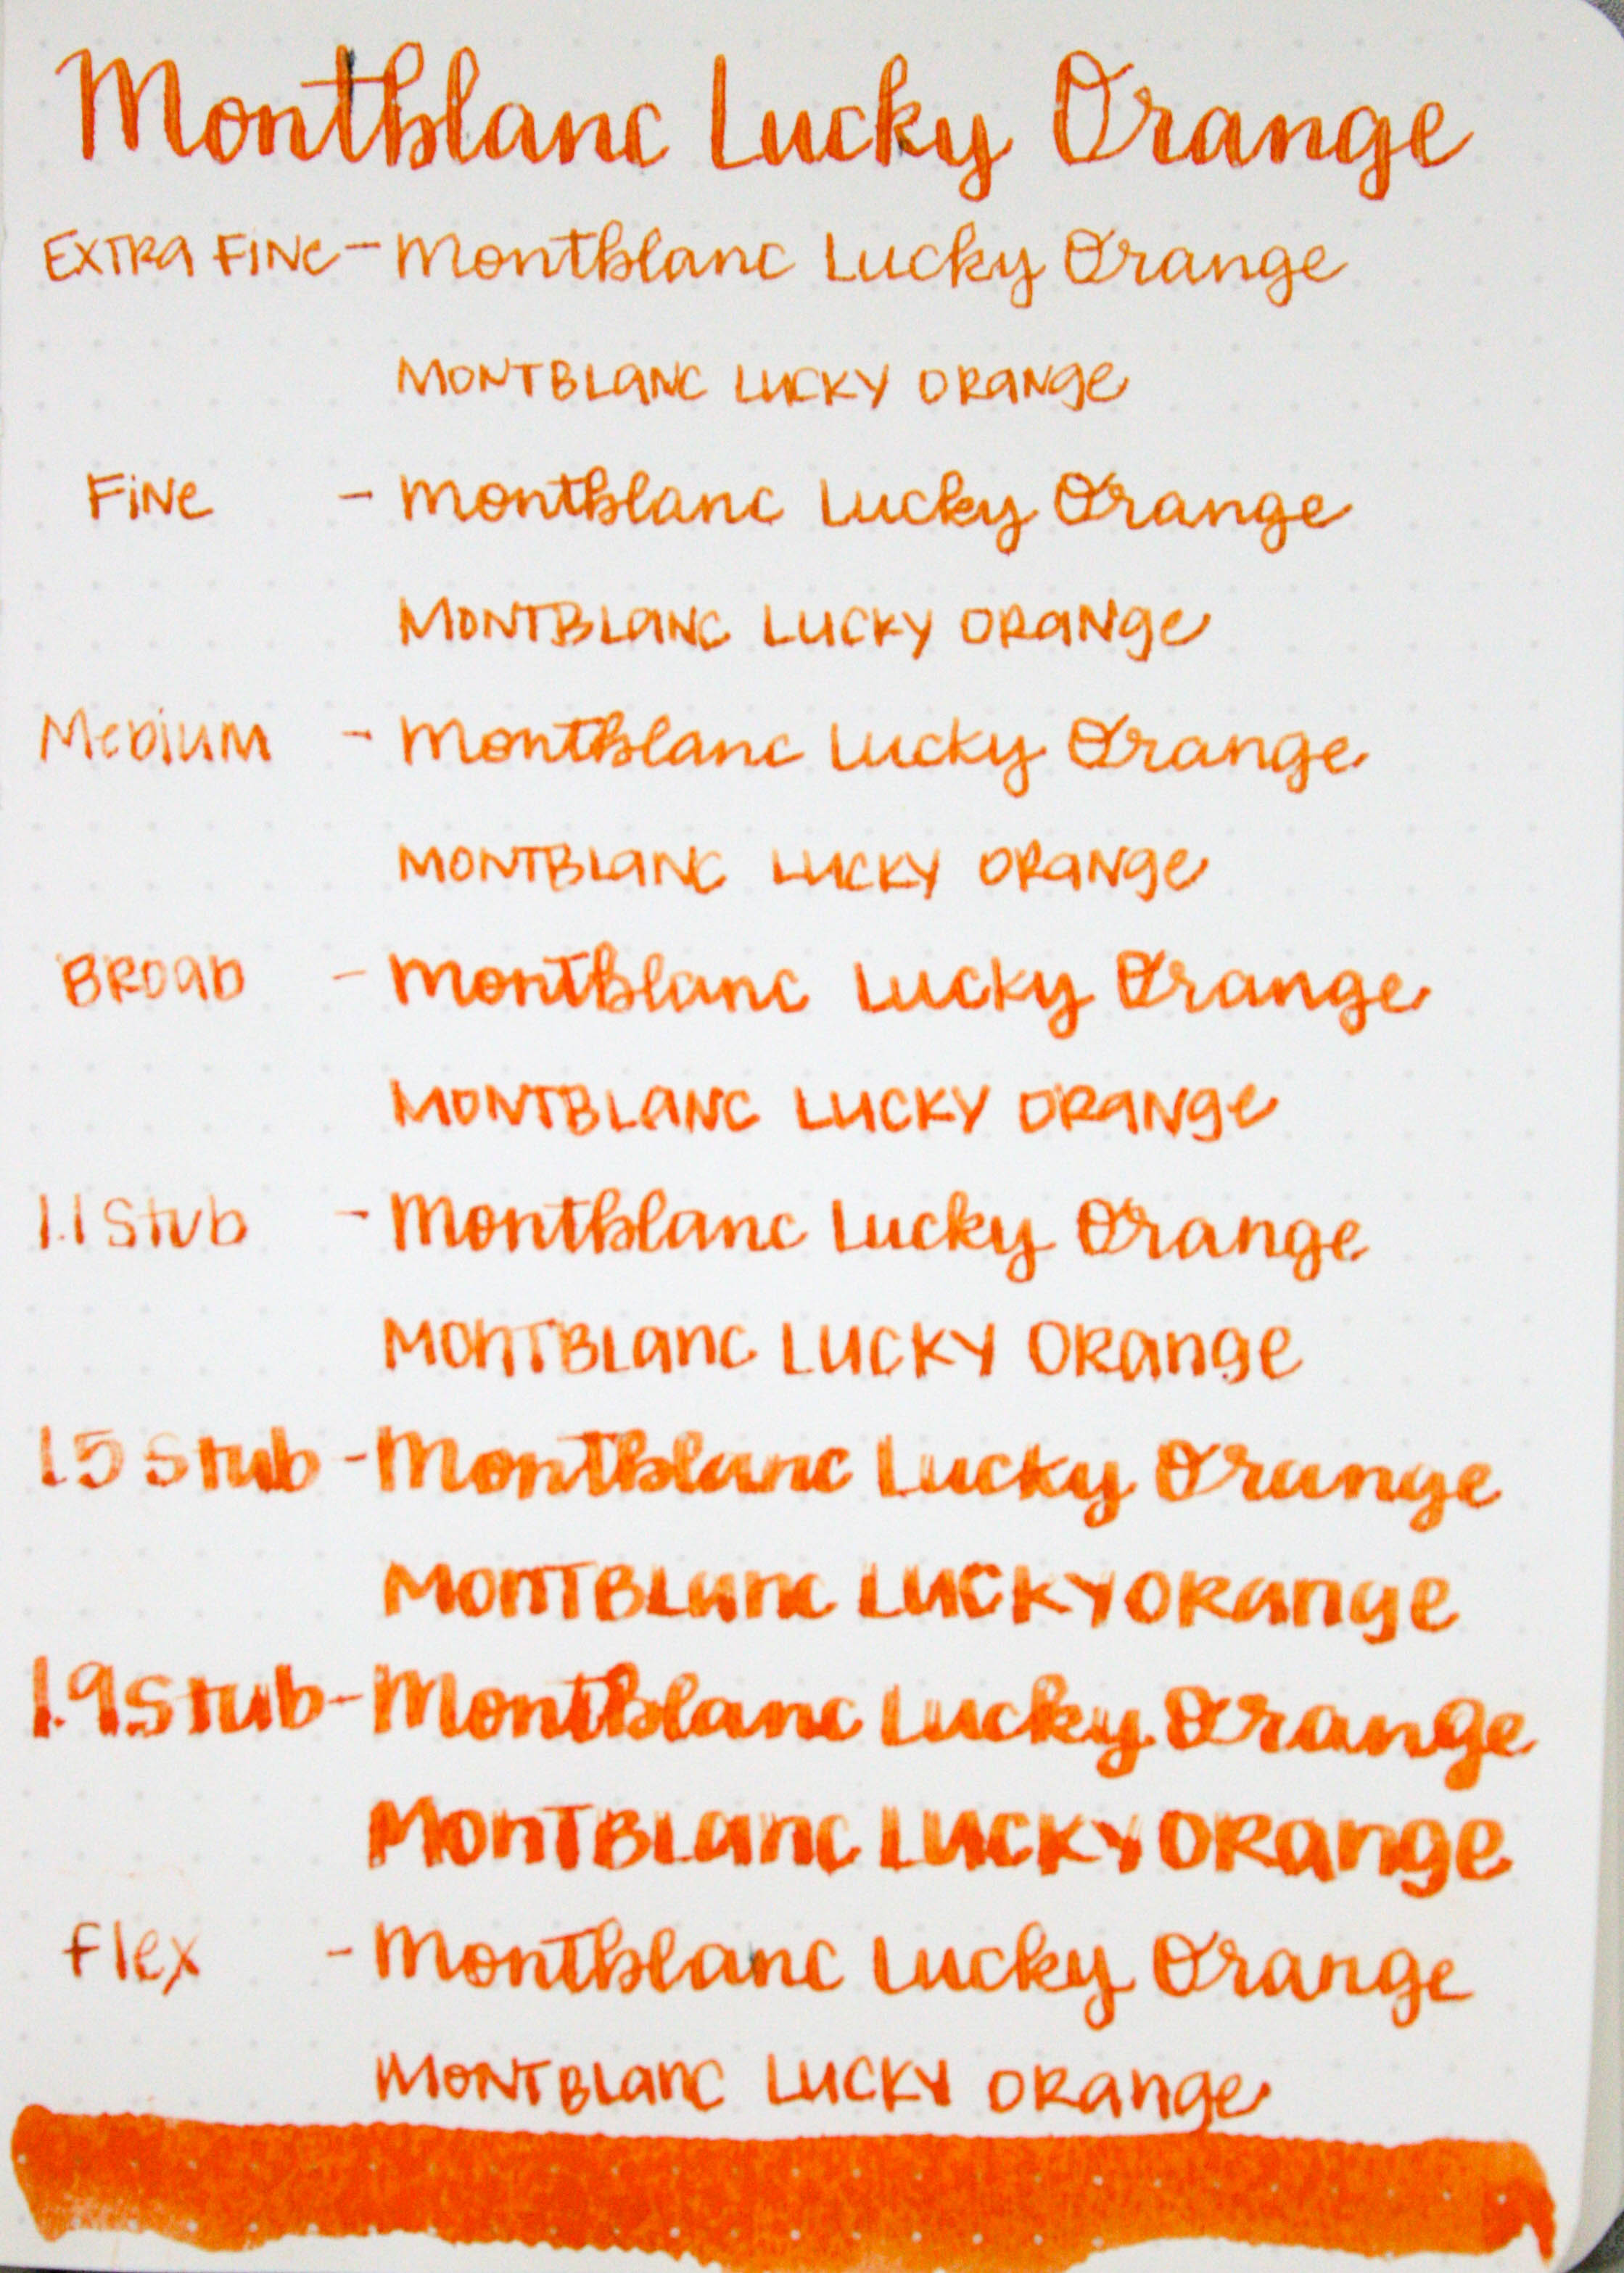 Montblanc Lucky Orange
EXTRA FINE - Montblanc Lucky Orange
MONTBLANC LUCKY ORANge
FINe - Montblanc Lucky Orange
MONTBLANC LUCKY ORANge
MeDIUM - Montblanc Lucky Orange
MONTBLANC LUCKY ORANge
BROAD - Montblanc Lucky Orange
MONTBLANC LUCKY ORANge
1.1 Stub - Montblanc Lucky Orange
MOnTBLanc LUCKY ORange
1.5 Stub - Montblanc Lucky Orange
MOnTBLanc LUCKY ORange
1.9 Stub - Montblanc Lucky Orange
MOnTBLanc LUCKY ORange
Flex - Montblanc Lucky Orange
MONTBLanc LUCKY ORange